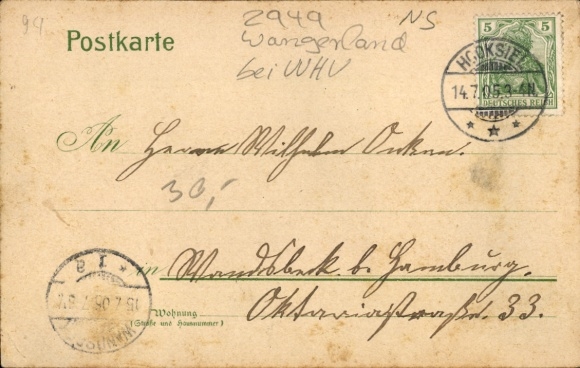 94
2949 NS
Wangerland
bei WHV
Postkarte
5 5
DEUTSCHES REICH
HOOKSIEL
14.7.05.3-4N.
An Herrn Wilhelm Onken.
30,-
in Wandsbeck b. Hamburg.
Wohnung
(Straße und Hausnummer)
Oktaviastraße. 33.
* 1 a
15.7.05.7-8V.
WANDSBEK